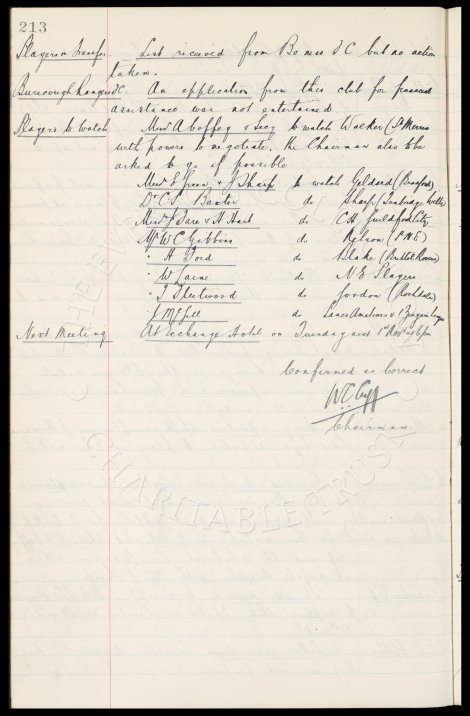 213
Players on Transfer. List received from Bo'ness F.C but no action
taken.
Burscough Rangers FC. An application from this club for financial
assistance was not entertained
Players to Watch Messrs A Coffey & to watch Walker (St Mirren
with powers to negotiate. The Chairman also to be
asked to go if possible
Messrs E Green & J Sharp to watch Geldard (Bradford)
Dr C.S. Baxter do Sharp (Tunbridge Wells
Messrs J Dare & H Hart do C.H. Guildford City
Mr W C Gibbins do (P N E)
" H Ford do Blake (Bristol Rovers)
" W Caine do N.E Players
" T Fleetwood do Gordon (Rochdale)
J McGill do Lancs Amateurs v
Next Meeting At Exchange Hotel on Tuesday next 1st Nov at
Confirmed as Correct
W.C. Cuff
Chairman
CHARITABLE TRUST